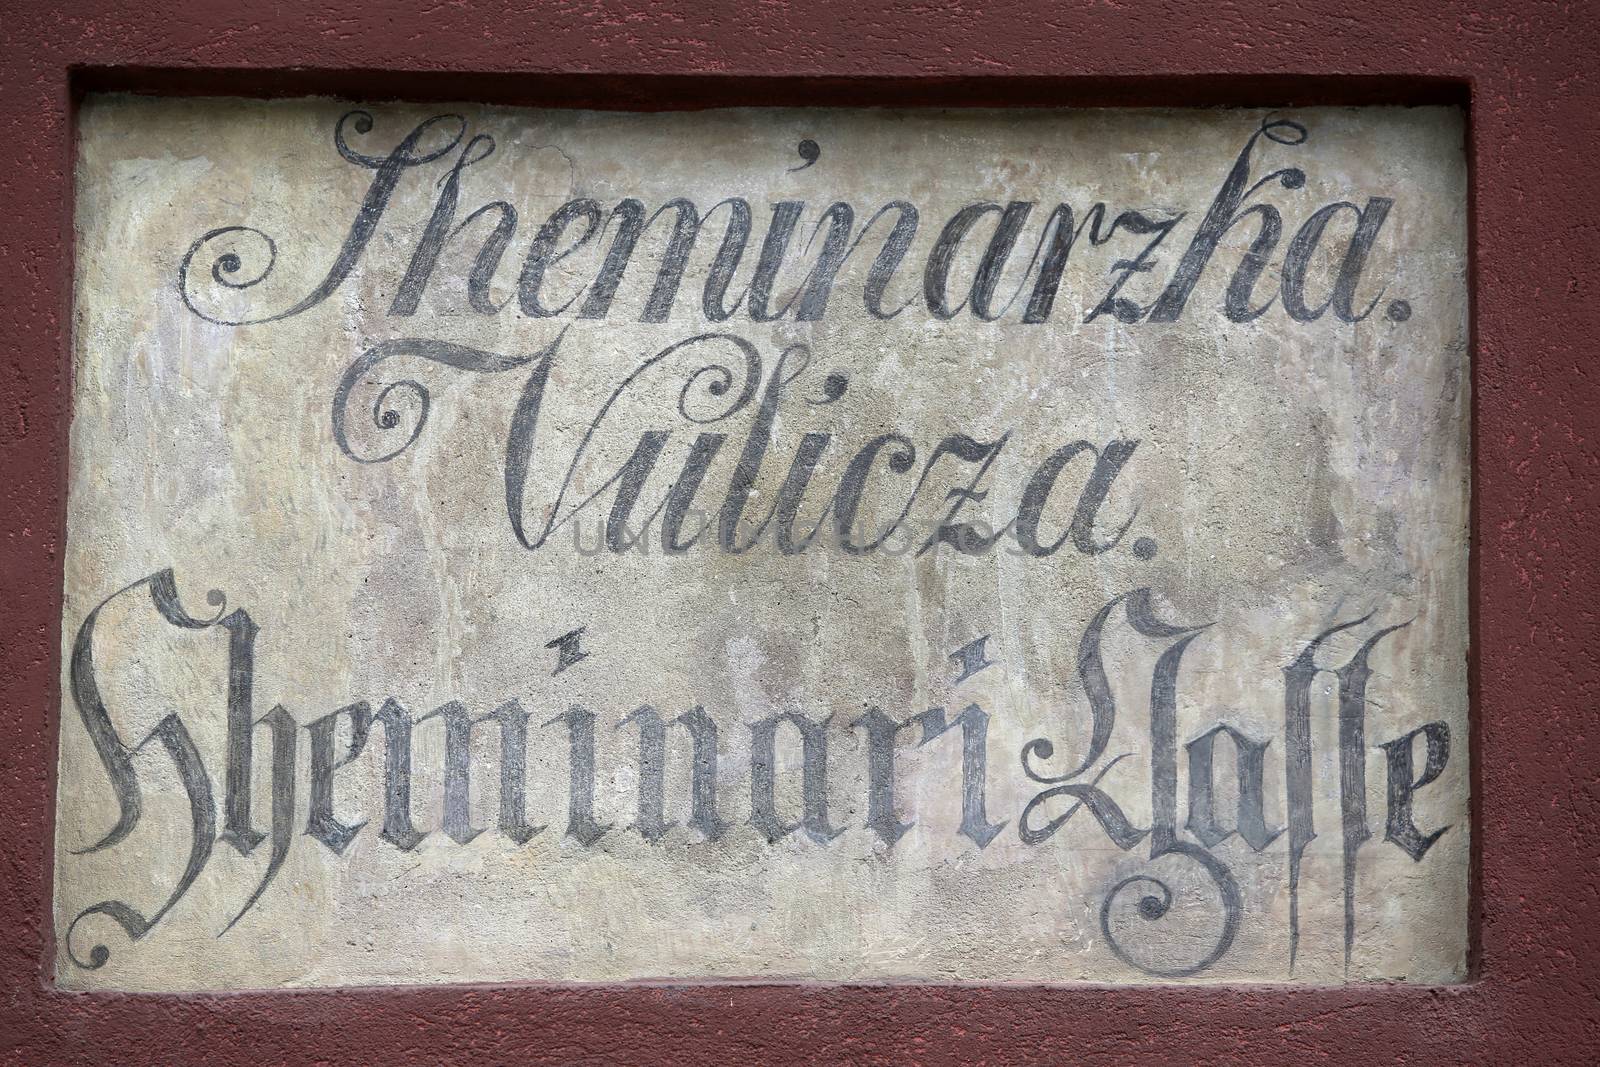 Sheminarzka.
Vulicza.
UNITEDPHOTOS
Sheminari Gaſſe